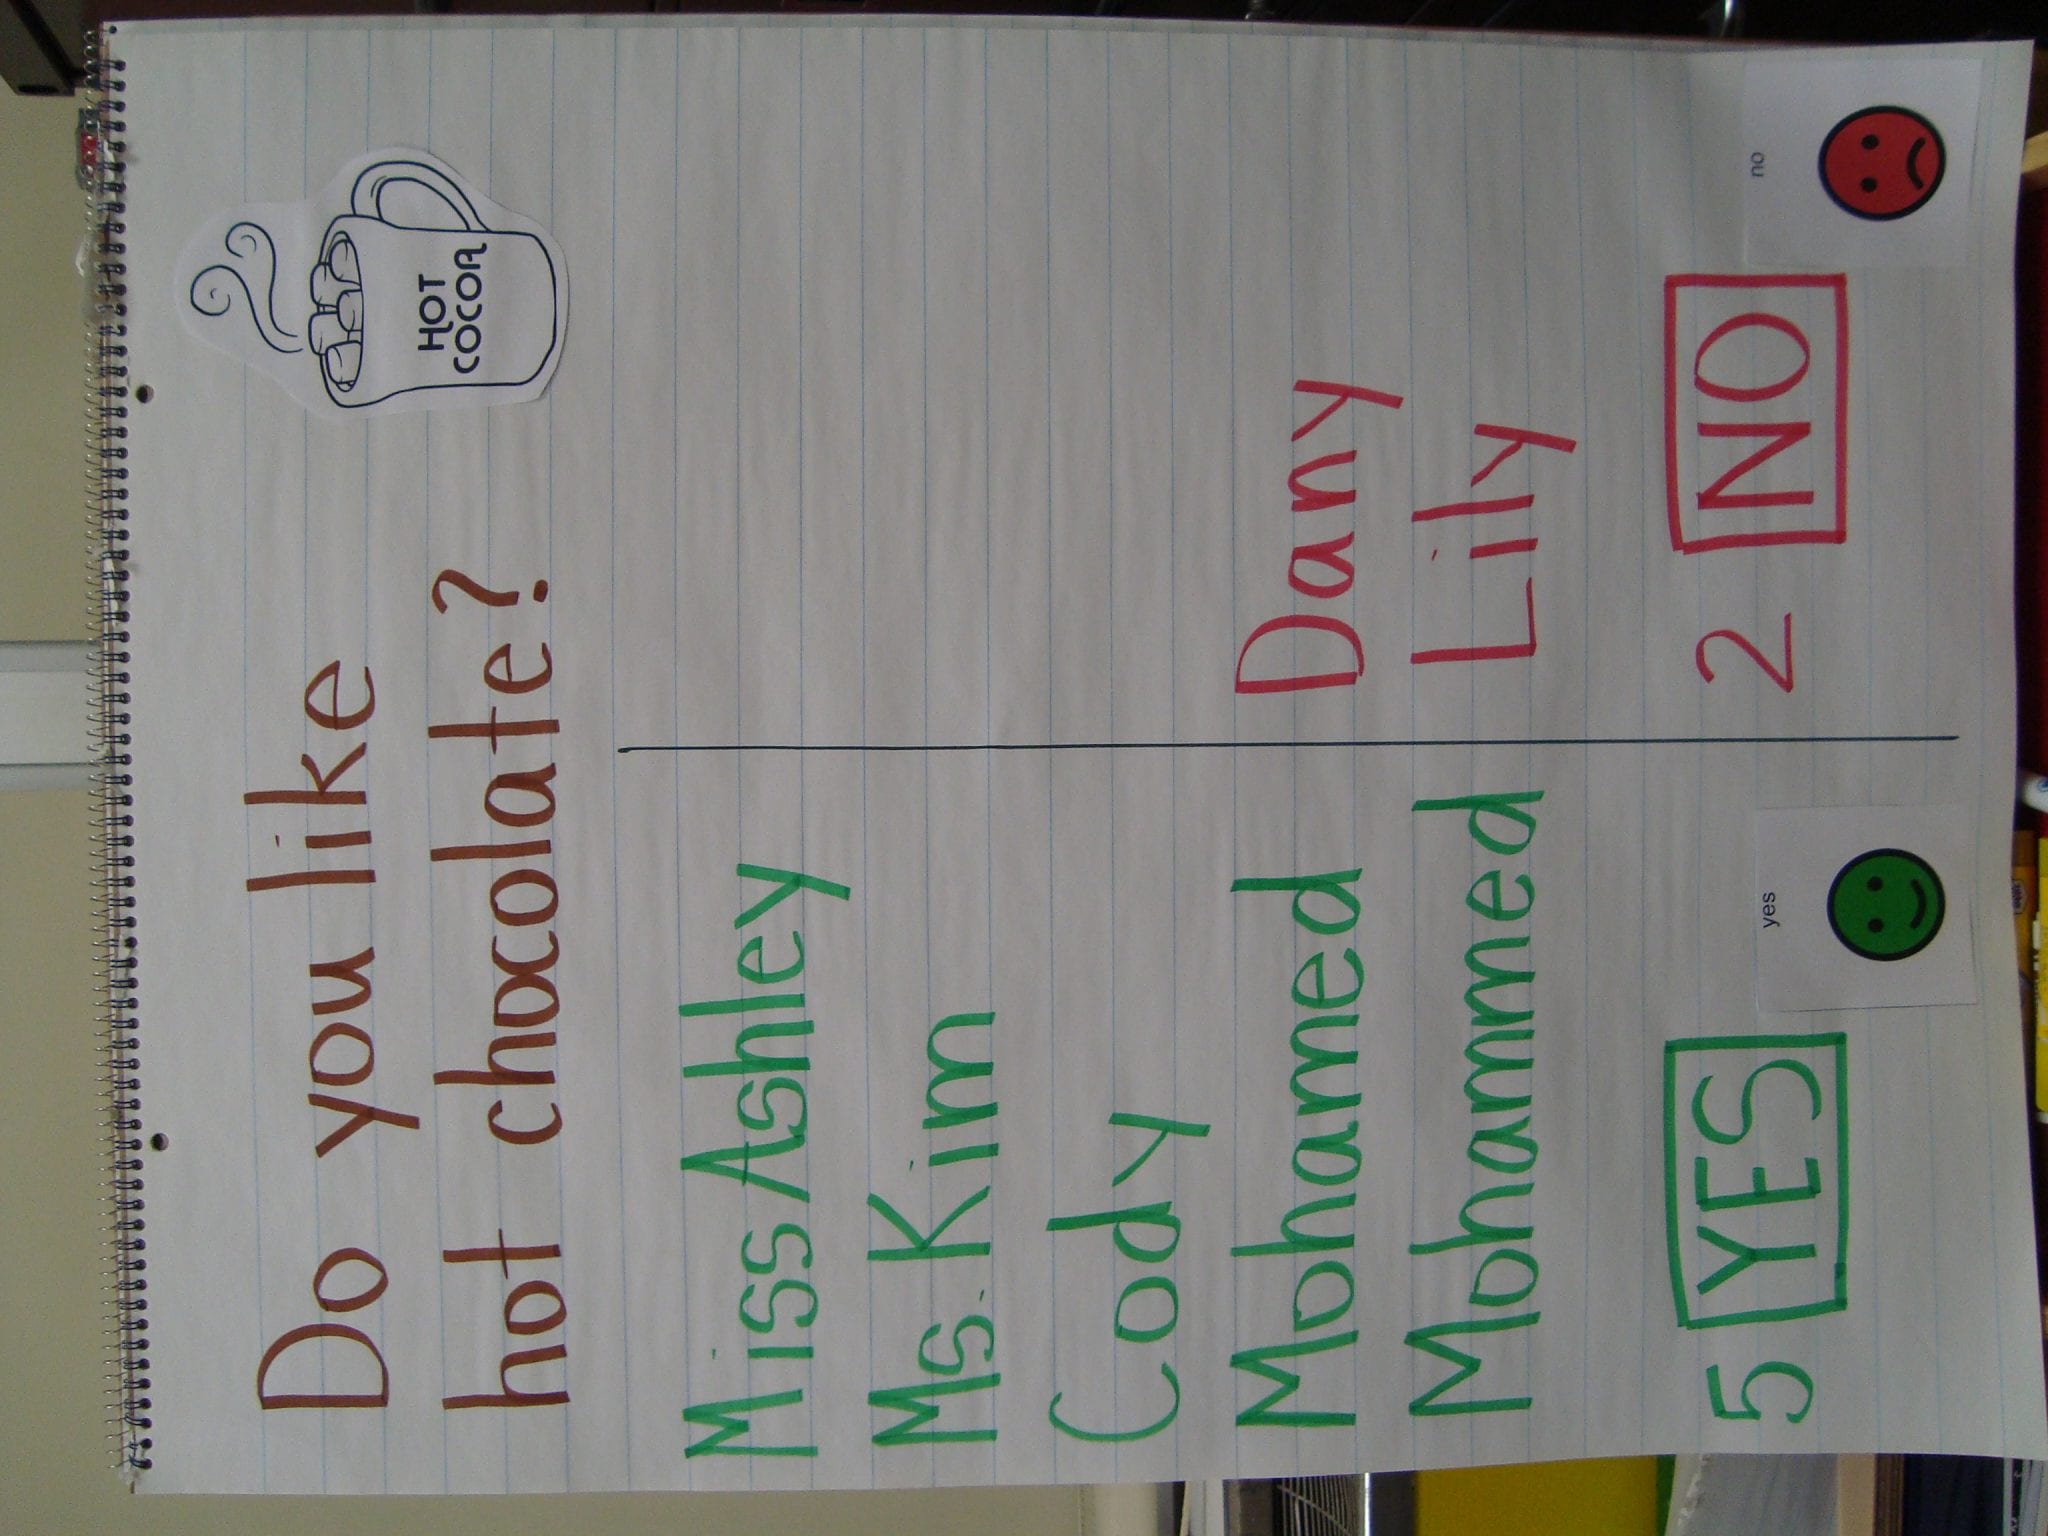 Do you like
hot chocolate?
HOT
COCOA
Miss Ashley
Ms. Kim
Cody
Mohamed
Mohammed
Dany
Lily
5 YES
yes
2 NO
no